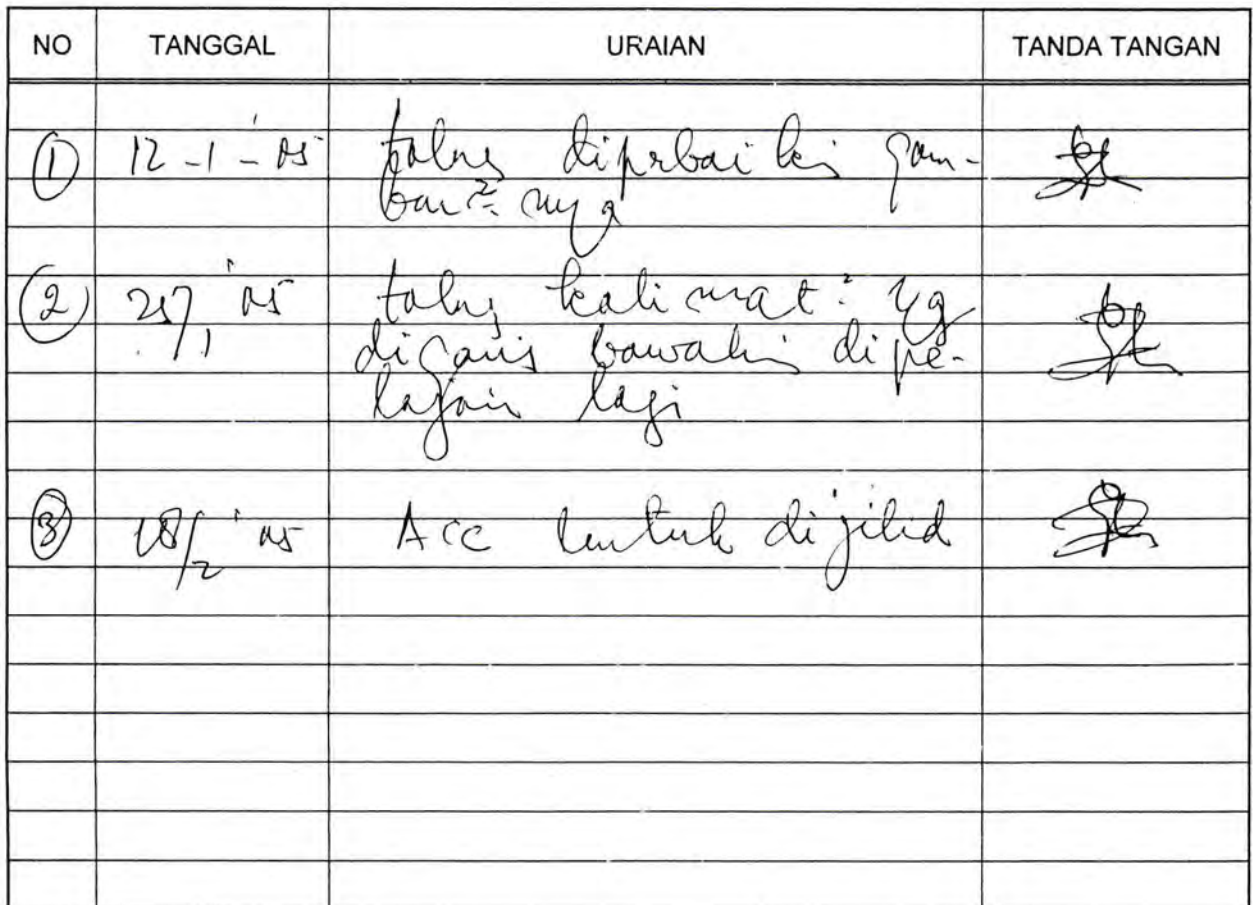 NO TANGGAL URAIAN TANDA TANGAN
① 12-1-'05 tolong diperbaiki gam-
bar²nya
② 25/1 '05 tolong kalimat² yg
digaris bawahi dipe-
lajari lagi
③ 18/2 '05 Acc untuk dijilid